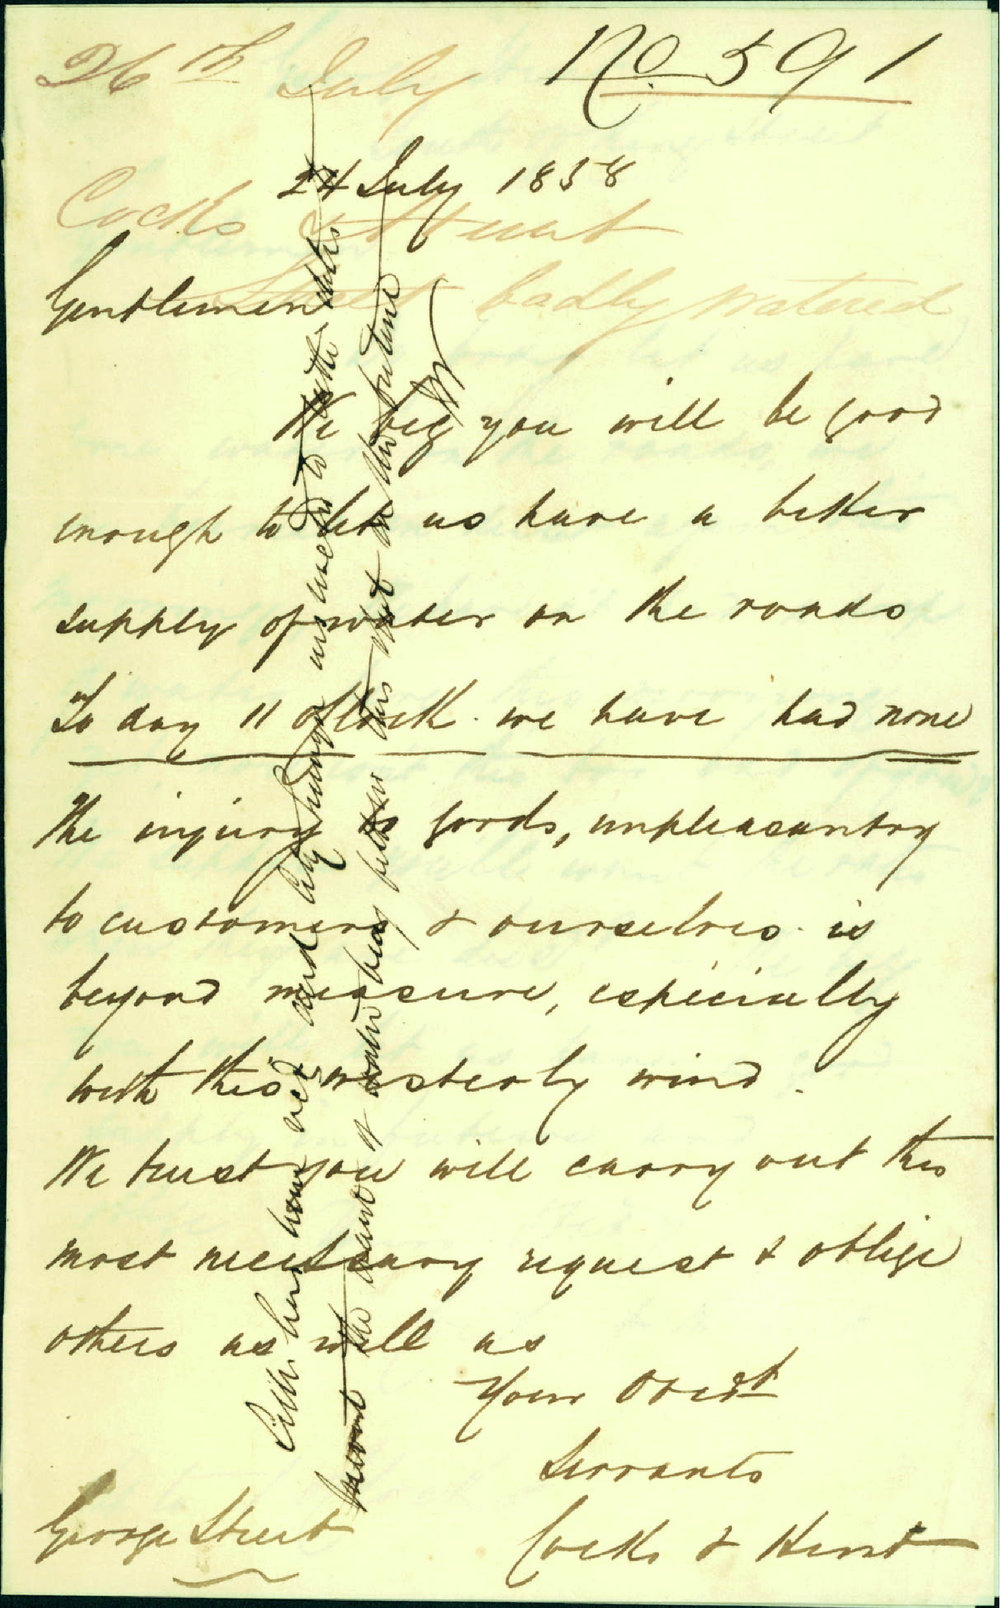 26th July No. 591
24 July 1858
Cocks & Hunt
Gentlemen
Street badly watered
We beg you will be good
enough to let us have a better
supply of water on the roads
To day 11 oClock we have had none
The injury to goods, unpleasantry
to customers & ourselves is
beyond measure, especially
with this westerly wind.
We trust you will carry out this
most necessary request & oblige
others as well as
Your Obedt
Servants
George Street
Cocks & Hunt
have and City
prevent the want of water being felt in the future